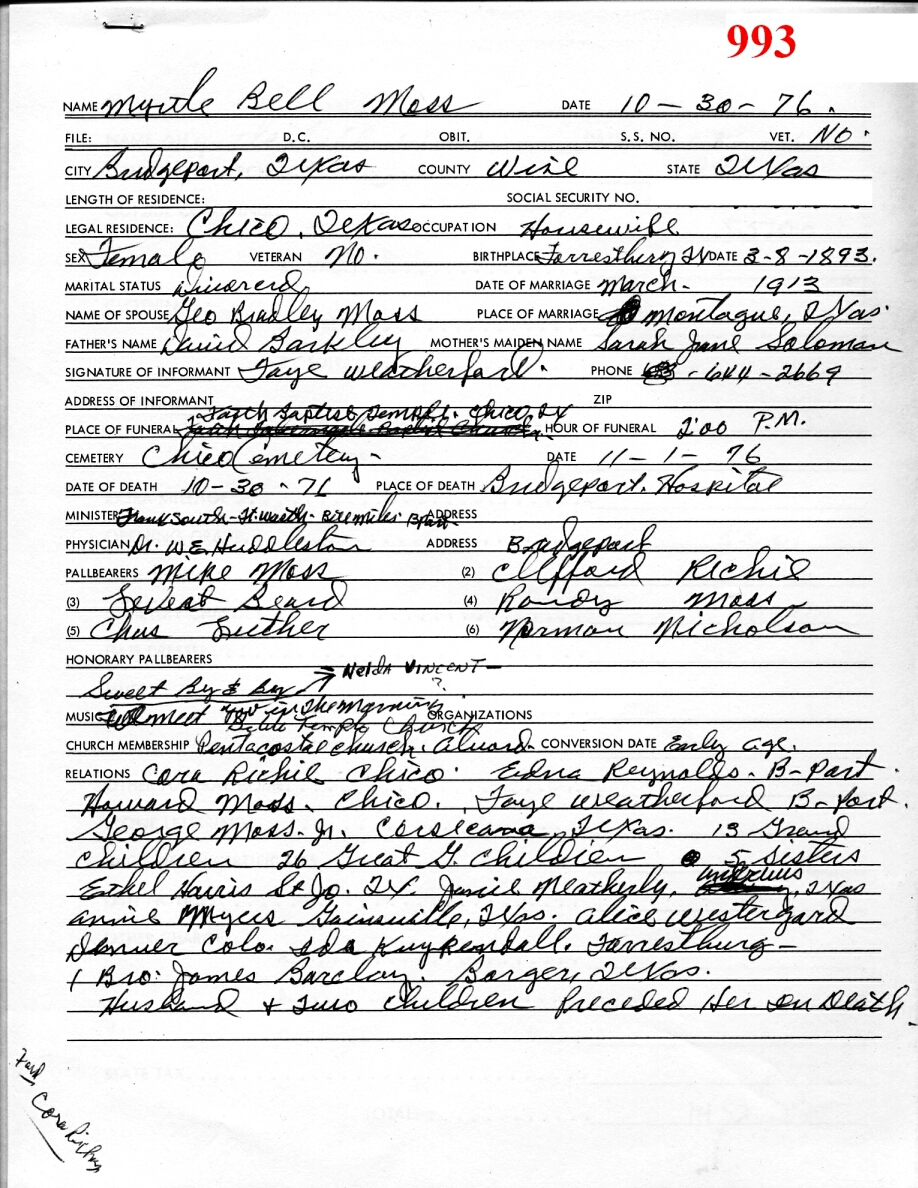 993
NAME Myrtle Bell Moss DATE 10-30-76.
FILE: D.C. OBIT. S.S. NO. VET. NO.
CITY Bridgeport, Texas COUNTY Wise STATE Texas
LENGTH OF RESIDENCE: SOCIAL SECURITY NO.
LEGAL RESIDENCE: Chico, Texas OCCUPATION Housewife
SEX Female VETERAN No. BIRTHPLACE Forrestburg TX DATE 3-8-1893.
MARITAL STATUS Divorced DATE OF MARRIAGE March - 1913
NAME OF SPOUSE Geo Bradley Moss PLACE OF MARRIAGE Montague, Texas.
FATHER'S NAME David Barkley MOTHER'S MAIDEN NAME Sarah Jane Soloman
SIGNATURE OF INFORMANT Faye Weatherford. PHONE - 644-2669
ADDRESS OF INFORMANT ZIP
Faith Baptist Temple. Chico, TX
PLACE OF FUNERAL HOUR OF FUNERAL 2:00 P.M.
CEMETERY Chico Cemetery - DATE 11-1-76
DATE OF DEATH 10-30-76 PLACE OF DEATH Bridgeport. Hospital
MINISTER Frank South - Ft. Worth - ADDRESS
PHYSICIAN Dr. W E Huddleston ADDRESS Bridgeport
PALLBEARERS Mike Moss (2) Clifford Richie
(3) Beard (4) Randy Moss
(5) Chas Luther (6) Norman Nicholson
HONORARY PALLBEARERS → Nelda Vincent -
Sweet By & By ?
MUSIC meet you in the Morning. ORGANIZATIONS
Temple Church
CHURCH MEMBERSHIP Pentacostal church. Alvord. CONVERSION DATE Early age.
RELATIONS Cora Richie Chico. Edna Reynolds. B-Port.
Howard Moss. Chico. Faye Weatherford B-Port.
George Moss. Jr. Corsicana, Texas. 13 Grand
Children 26 Great G. Children 5 Sisters
Ethel Harris St Jo. TX. Janie Meatherly, Andrews, Texas
Annie Myers Gainsville, Texas. Alice Westergard
Denver Colo. Ida Kuykendall. Forrestburg -
1 Bro: James Barclay. Borger, Texas.
Husband & Two Children Preceded Her In Death.
Cora Richey